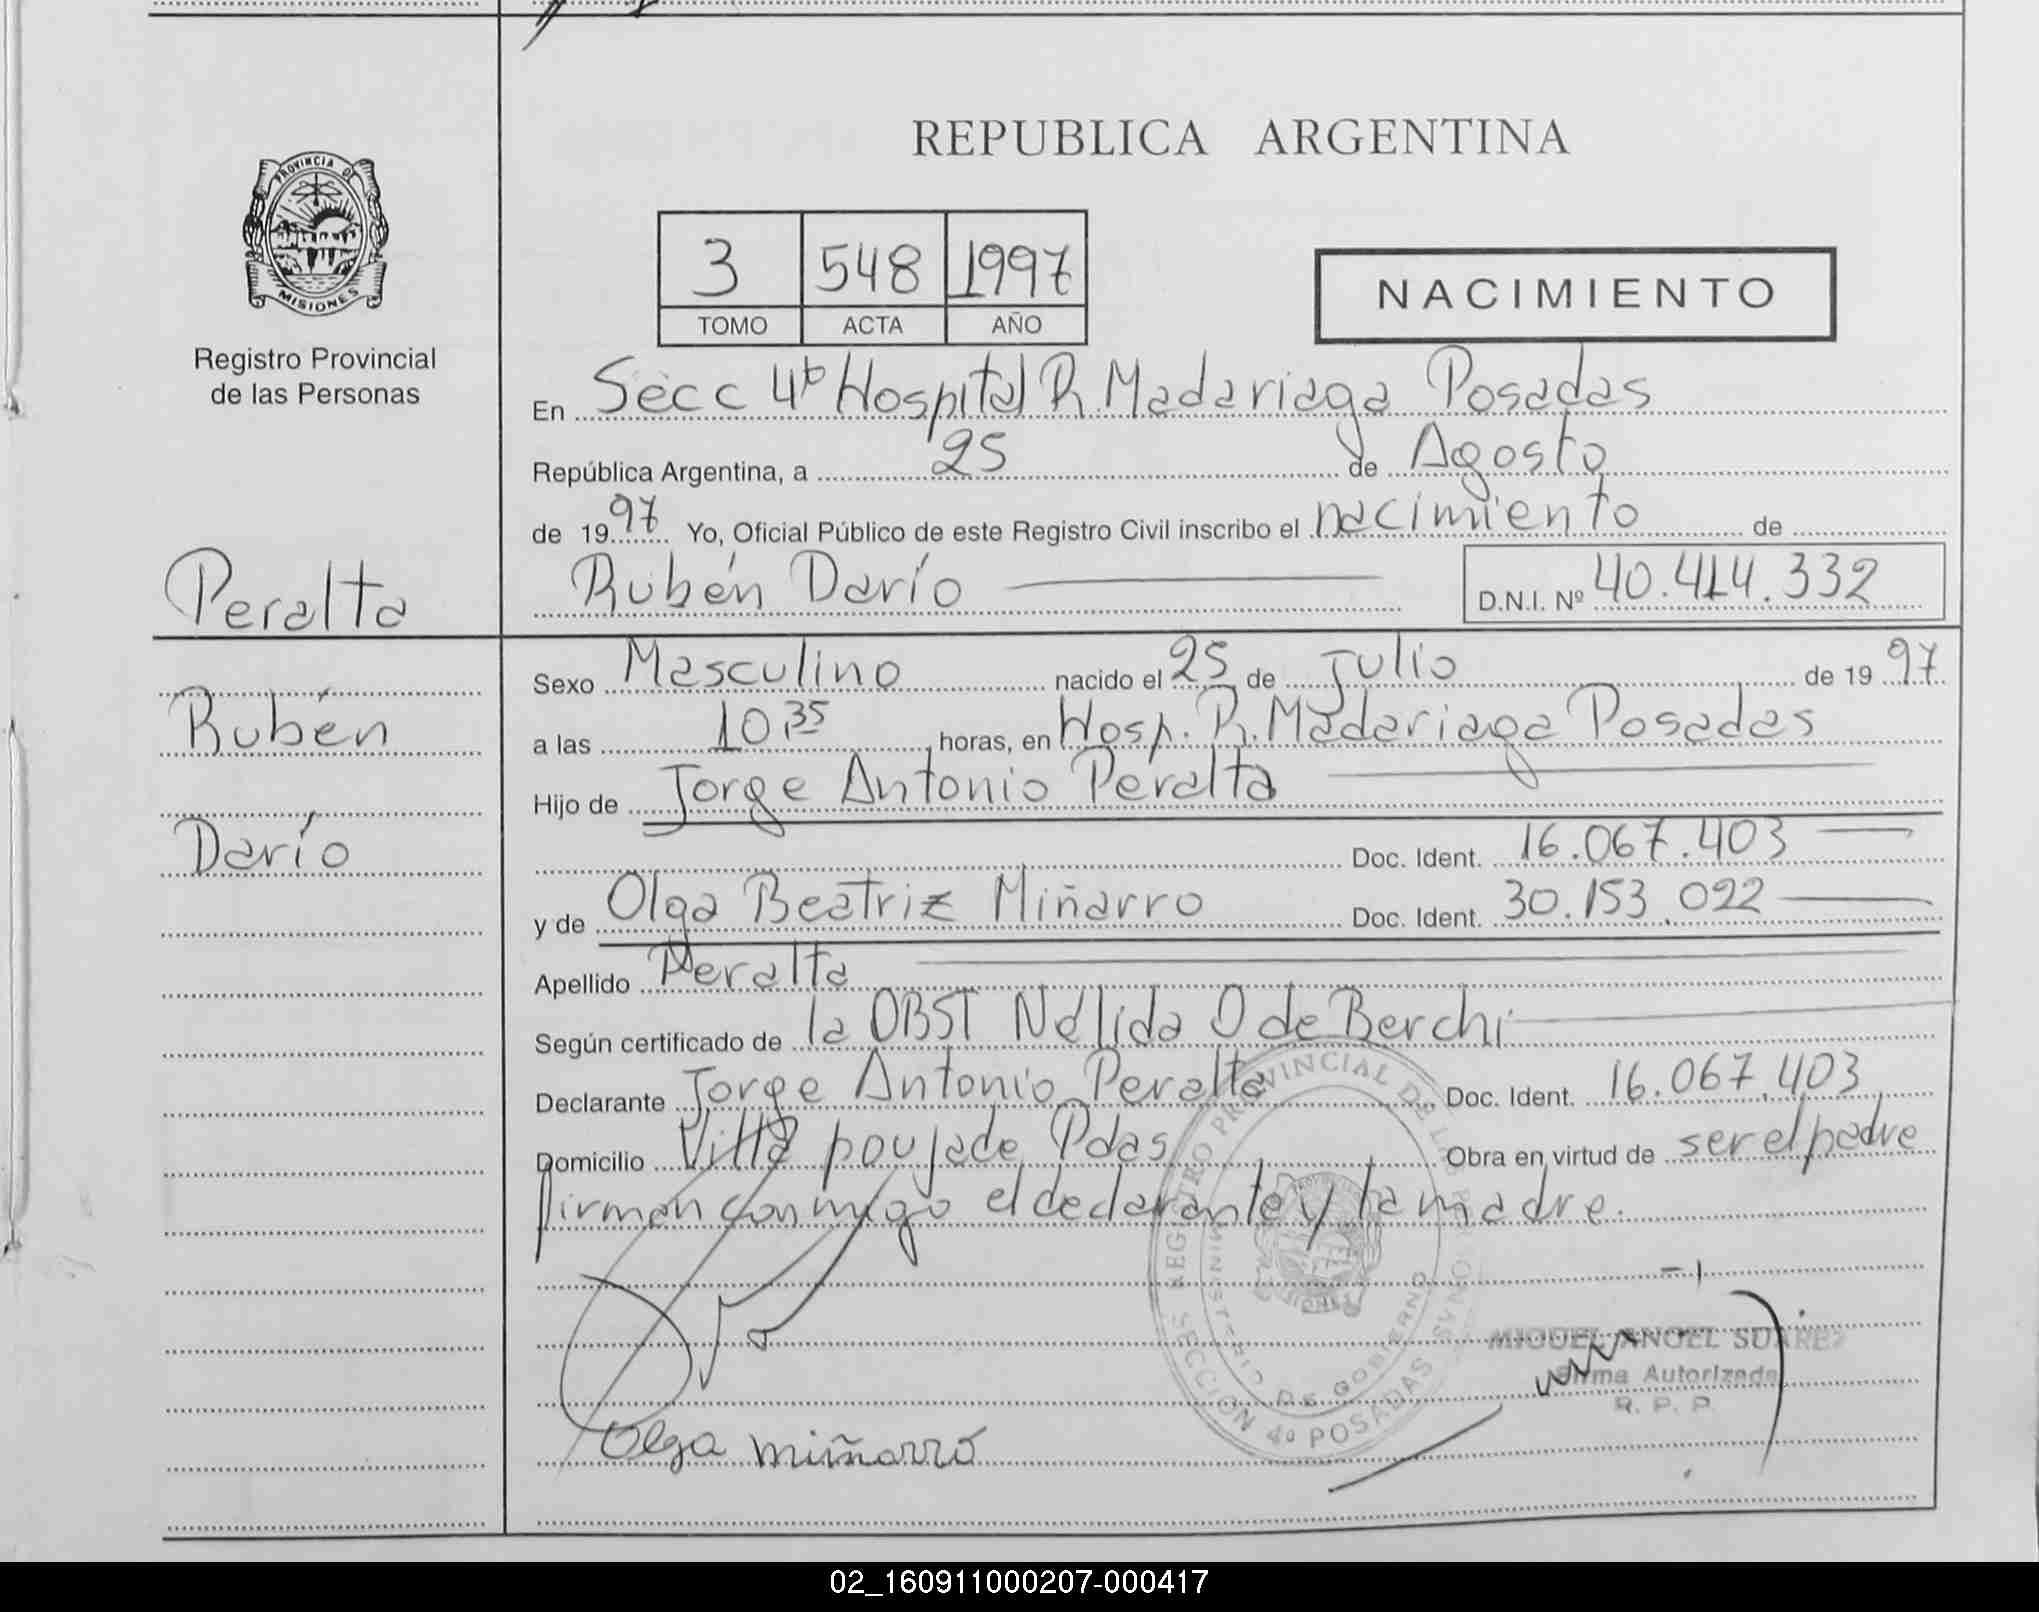 REPUBLICA ARGENTINA
PROVINCIA DE
MISIONES
Registro Provincial
de las Personas
3 548 1997
TOMO ACTA AÑO
NACIMIENTO
En Secc 4ª Hospital R. Madariaga Posadas
República Argentina, a 25 de Agosto
de 1997 Yo, Oficial Público de este Registro Civil inscribo el nacimiento de
Rubén Darío D.N.I. Nº 40.414.332
Peralta
Rubén
Darío
Sexo Masculino nacido el 25 de Julio de 1997
a las 10,35 horas, en Hosp. R. Madariaga Posadas
Hijo de Jorge Antonio Peralta
Doc. Ident. 16.067.403
y de Olga Beatriz Miñarro Doc. Ident. 30.153.022
Apellido Peralta
Según certificado de la OBST Nélida O de Berchi
Declarante Jorge Antonio Peralta Doc. Ident. 16.067.403
Domicilio Villa poujade Pdas Obra en virtud de ser el padre
firman conmigo el declarante y la madre.
REGISTRO PROVINCIAL DE LAS PERSONAS
MINISTERIO DE GOBIERNO
SECCION 4º POSADAS
MIGUEL ANGEL SUAREZ
Firma Autorizada
R. P. P.
Olga miñarro
02_160911000207-000417